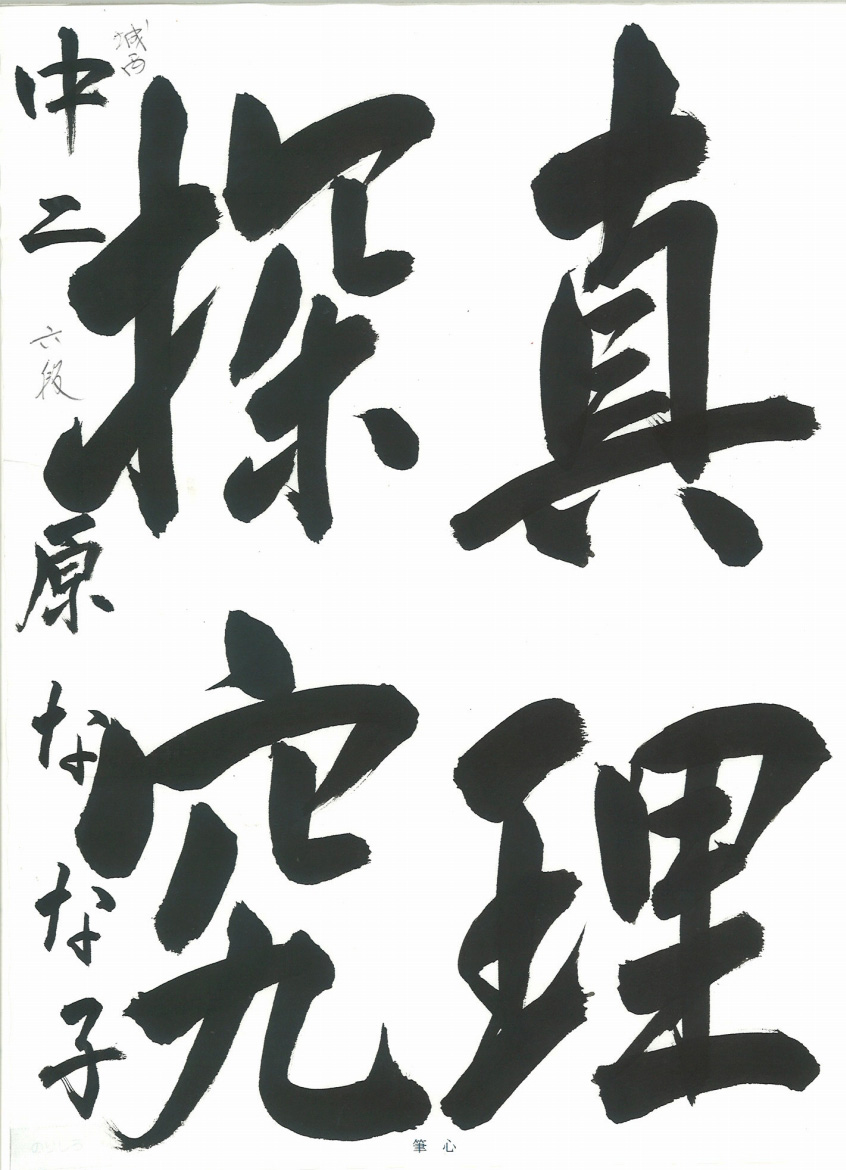 真理
探究
城西
中二 六段 原 なな子
筆心